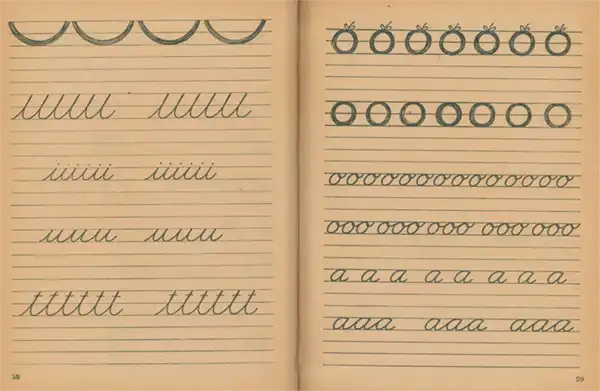 iiiiii iiiiii
uuu uuu
tttttt tttttt
58
oooooooooooooo
ooo ooo ooo ooo ooo
a a a a a a a a
aaa aaa aaa
59